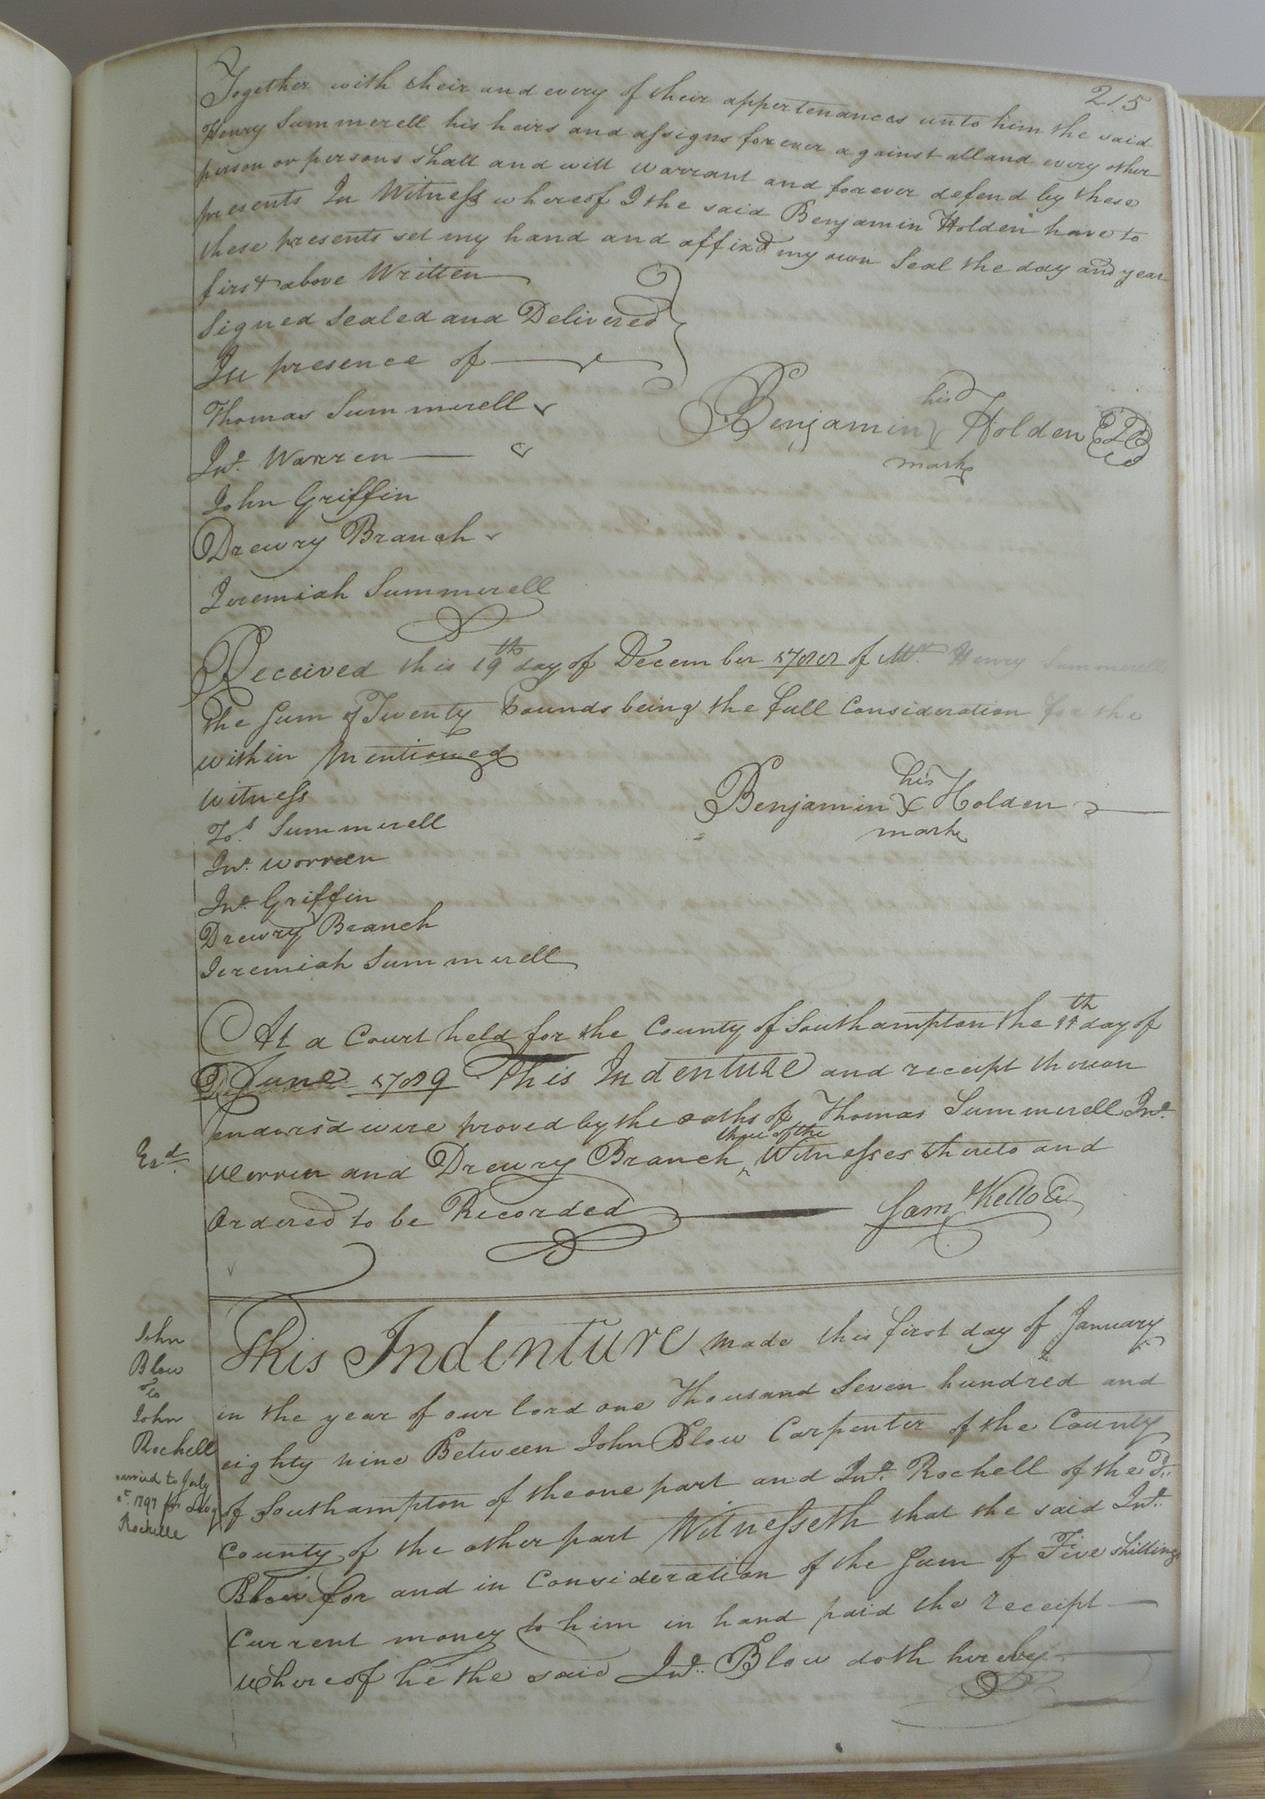 215
Together with their and every of their appertenances unto him the said
Henry Summerell his heirs and assigns forever against all and every other
person or persons shall and will warrant and forever defend by these
presents In Witness whereof I the said Benjamin Holden have to
these presents set my hand and affixd my own Seal the day and year
first above Written
Signed Sealed and Delivered
In presence of
Thomas Summerell
Jno. Warren
John Griffin
Drewry Branch
Jeremiah Summerell
his
Benjamin Holden
mark
Received this 19th day of December 1788 of Mr. Henry Summerell
the Sum of Twenty Pounds being the full Consideration for the
within Mentioned
Witness
Tos. Summerell
Jno. Worren
Jno. Griffin
Drewry Branch
Jeremiah Summerell
his
Benjamin Holden
mark
At a Court held for the County of Southampton the 11th day of
June 1789 This Indenture and receipt thereon
endorsd were proved by the oaths of Thomas Summerell Jno.
Worren and Drewry Branch three of the Witnesses thereto and
Ordered to be Recorded
Sam. Kello
Exd.
John
Blow
To
John
Rochell
to July
1797
Rochelle
This Indenture made this first day of January
in the year of our lord one Thousand Seven hundred and
eighty nine Between John Blow Carpenter of the County
of Southampton of the one part and Jno. Rochell of the sd.
County of the other part Witnesseth that the said Jno.
Blow for and in Consideration of the Sum of Five Shillings
Current money to him in hand paid the receipt
whereof he the said Jno. Blow doth hereby